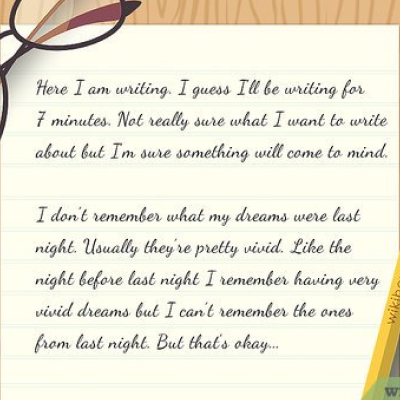 Here I am writing. I guess I'll be writing for
7 minutes. Not really sure what I want to write
about but I'm sure something will come to mind.
I don't remember what my dreams were last
night. Usually they're pretty vivid. Like the
night before last night I remember having very
vivid dreams but I can't remember the ones
from last night. But that's okay...